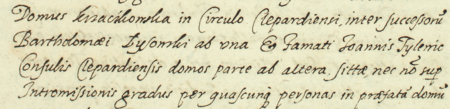 Domus Krzachlonska in Circulo Clepardiensi, inter successorũ
Bartholomæi Lysonski ab vna Et Famati Ioannis Tyleric
Consulis Clepardiensis domos parte ab altera sittæ, nec nõ sup
Intromissionis gradus per quascunq personas in præfatã domũ